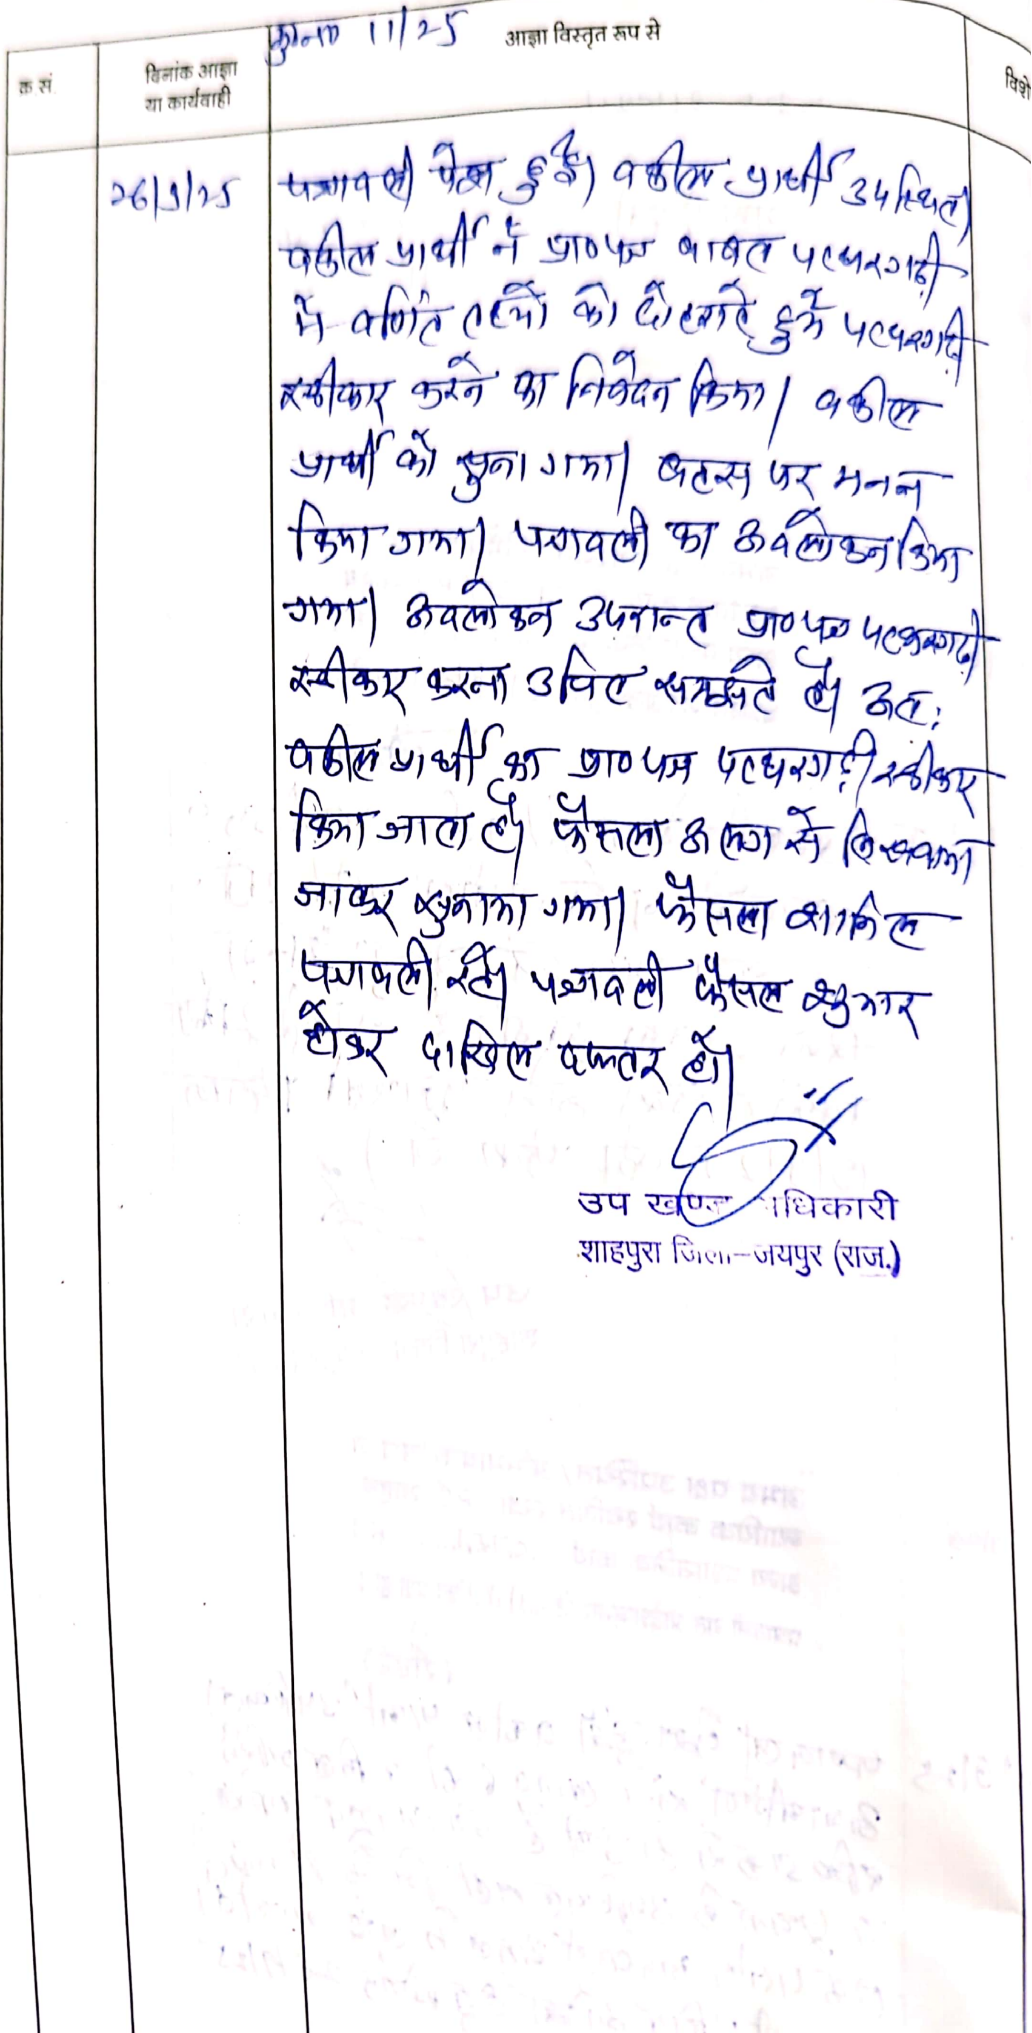 मु०न० 11/25
आज्ञा विस्तृत रूप से
क.सं.
दिनांक आज्ञा
या कार्यवाही
विशे
26/9/25
पत्रावली पेश हुई। वकील प्रार्थी उपस्थित।
वकील प्रार्थी ने प्रा०पत्र बाबत पत्थरगढ़ी
में वर्णित तथ्यों को दोहराते हुये पत्थरगढ़ी
स्वीकार करने का निवेदन किया। वकील
प्रार्थी को सुना गया। बहस पर मनन
किया गया। पत्रावली का अवलोकन किया
गया। अवलोकन उपरान्त प्रा०पत्र पत्थरगढ़ी
स्वीकार करना उचित समझते है। अतः
वकील प्रार्थी का प्रा०पत्र पत्थरगढ़ी स्वीकार
किया जाता है। फैसला अलग से लिखवाया
जाकर सुनाया गया। फैसला शामिल
पत्रावली रहे। पत्रावली फैसल शुमार
होकर दाखिल दफ्तर हो।
उप खण्ड अधिकारी
शाहपुरा जिला-जयपुर (राज.)